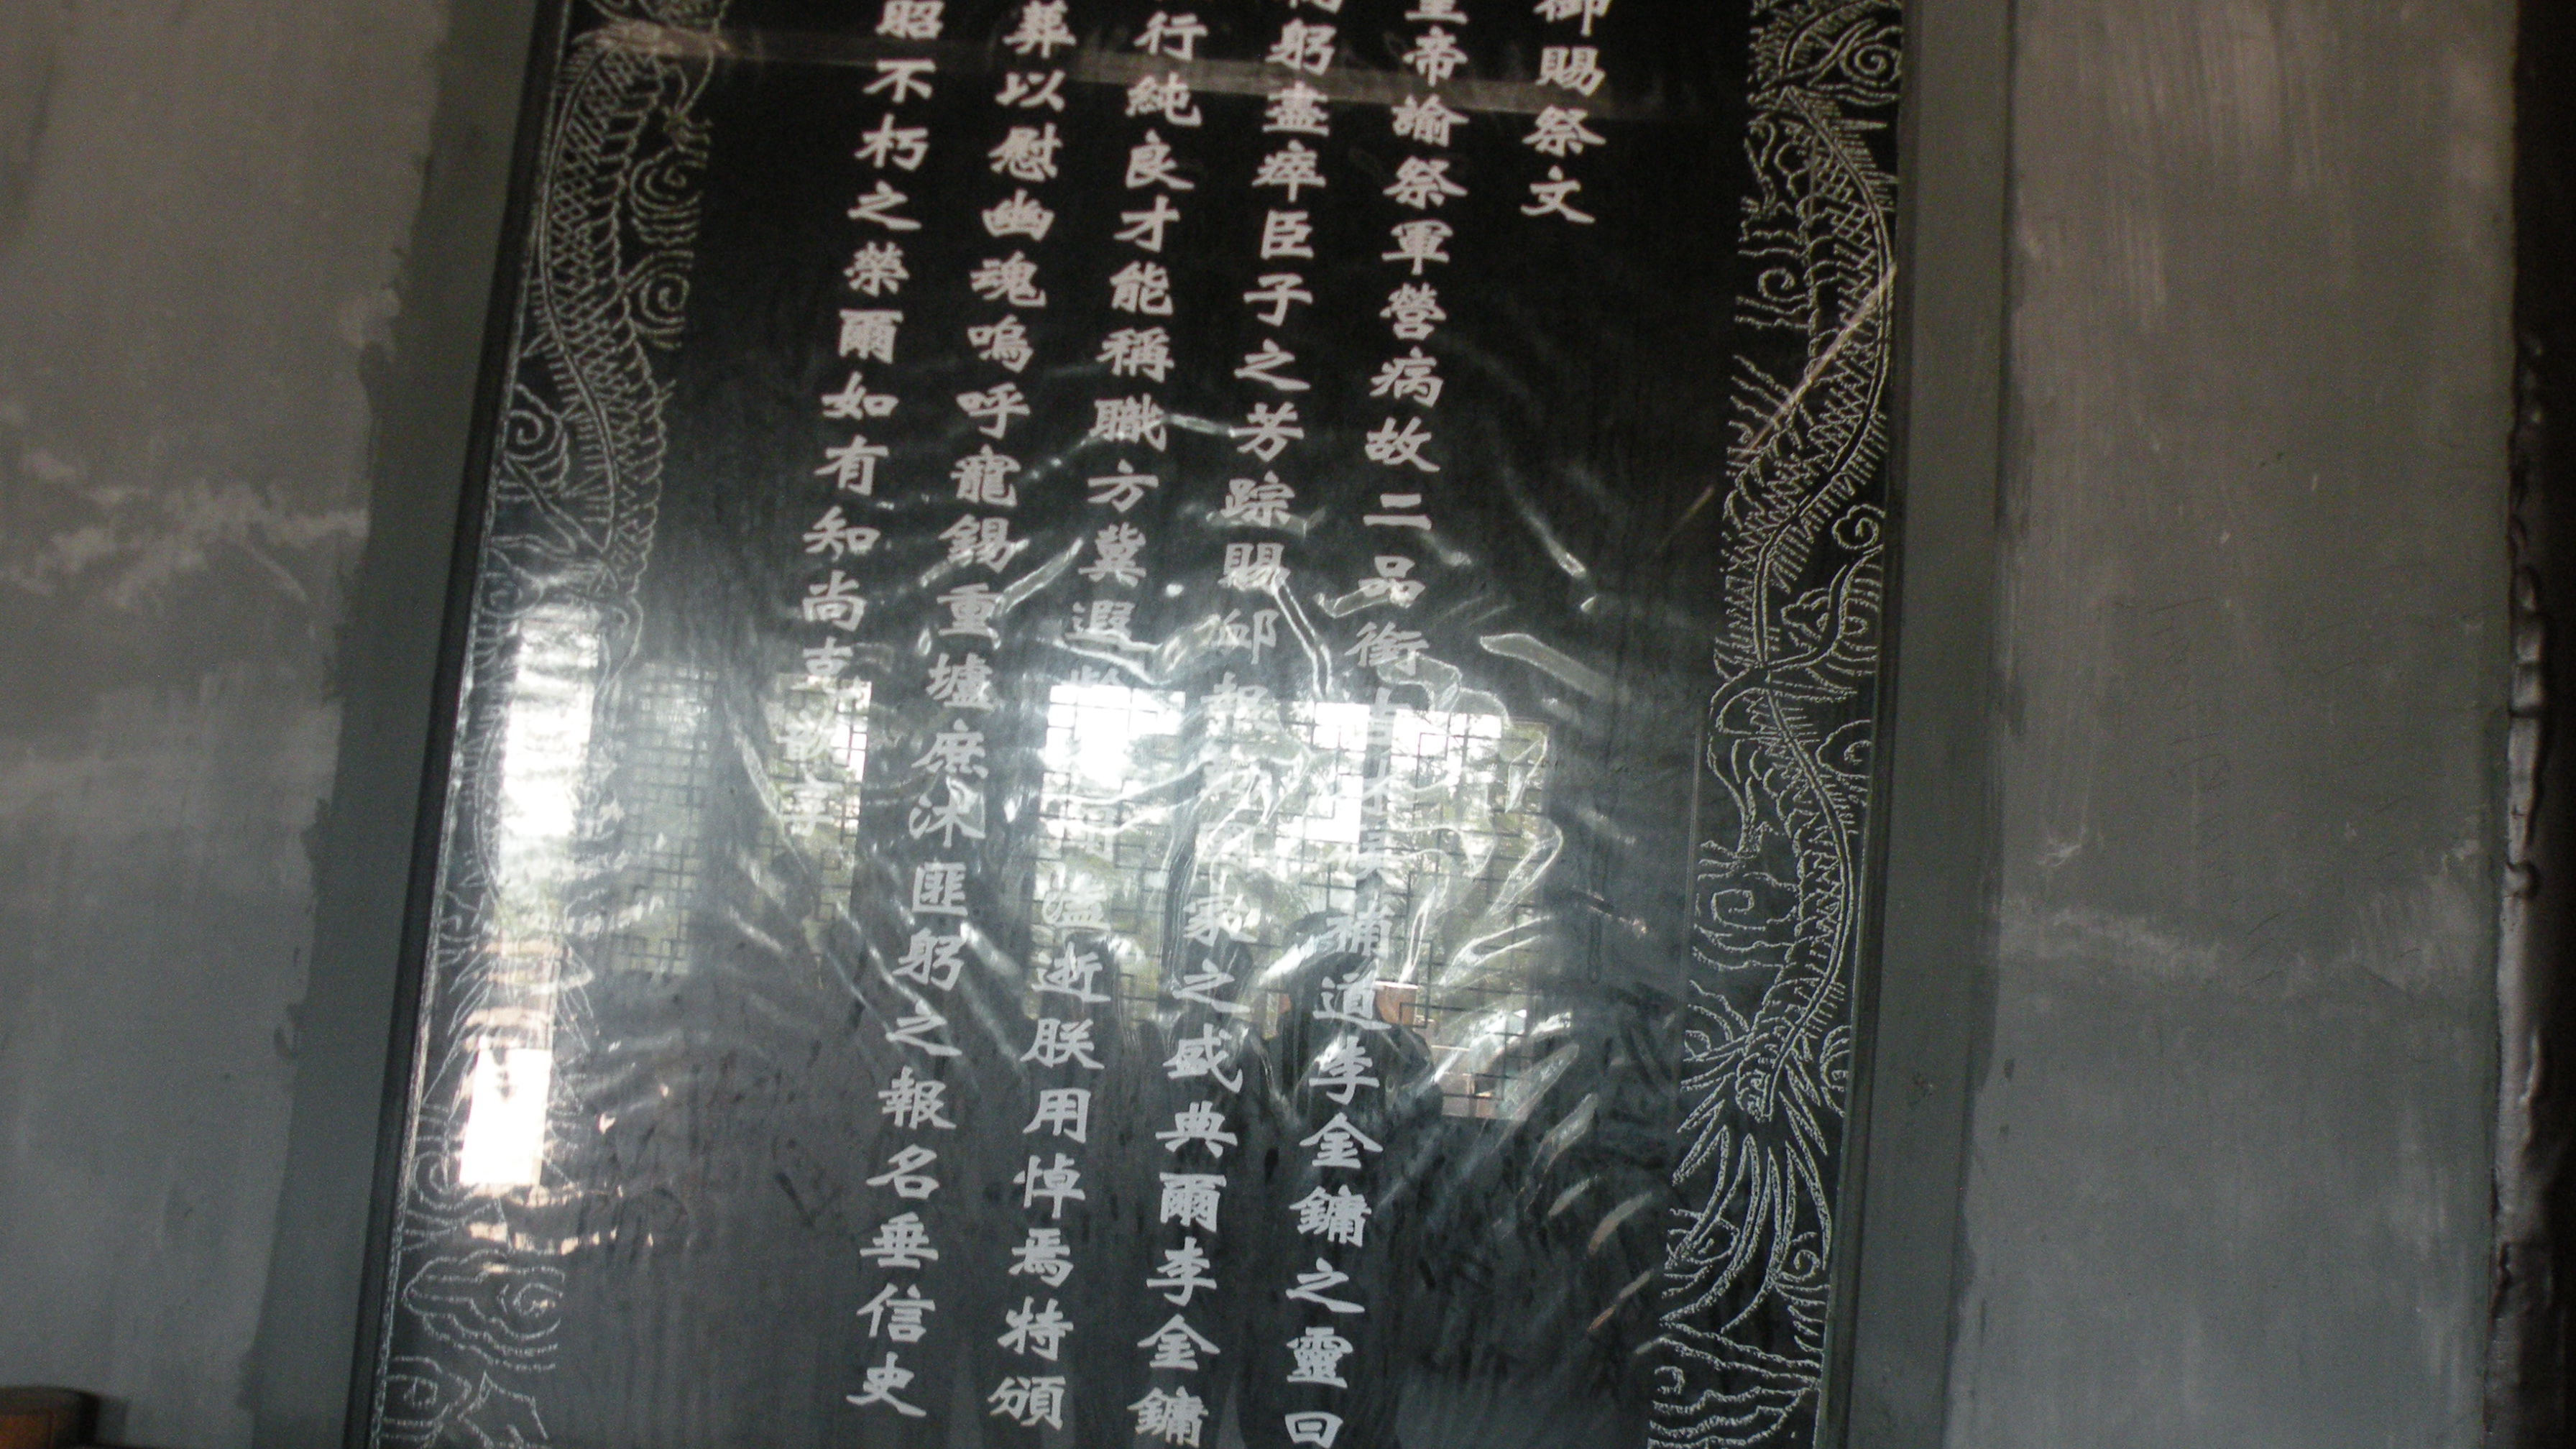 御賜祭文
皇帝諭祭軍營病故二品銜 補道李金鏞之靈曰
躬盡瘁臣子之芳踪賜卹報 家之盛典爾李金鏞
行純良才能稱職方冀遐齡 溘逝朕用悼焉特頒
葬以慰幽魂嗚呼寵錫重壚庶沐匪躬之報名垂信史
昭不朽之榮爾如有知尚克歆享